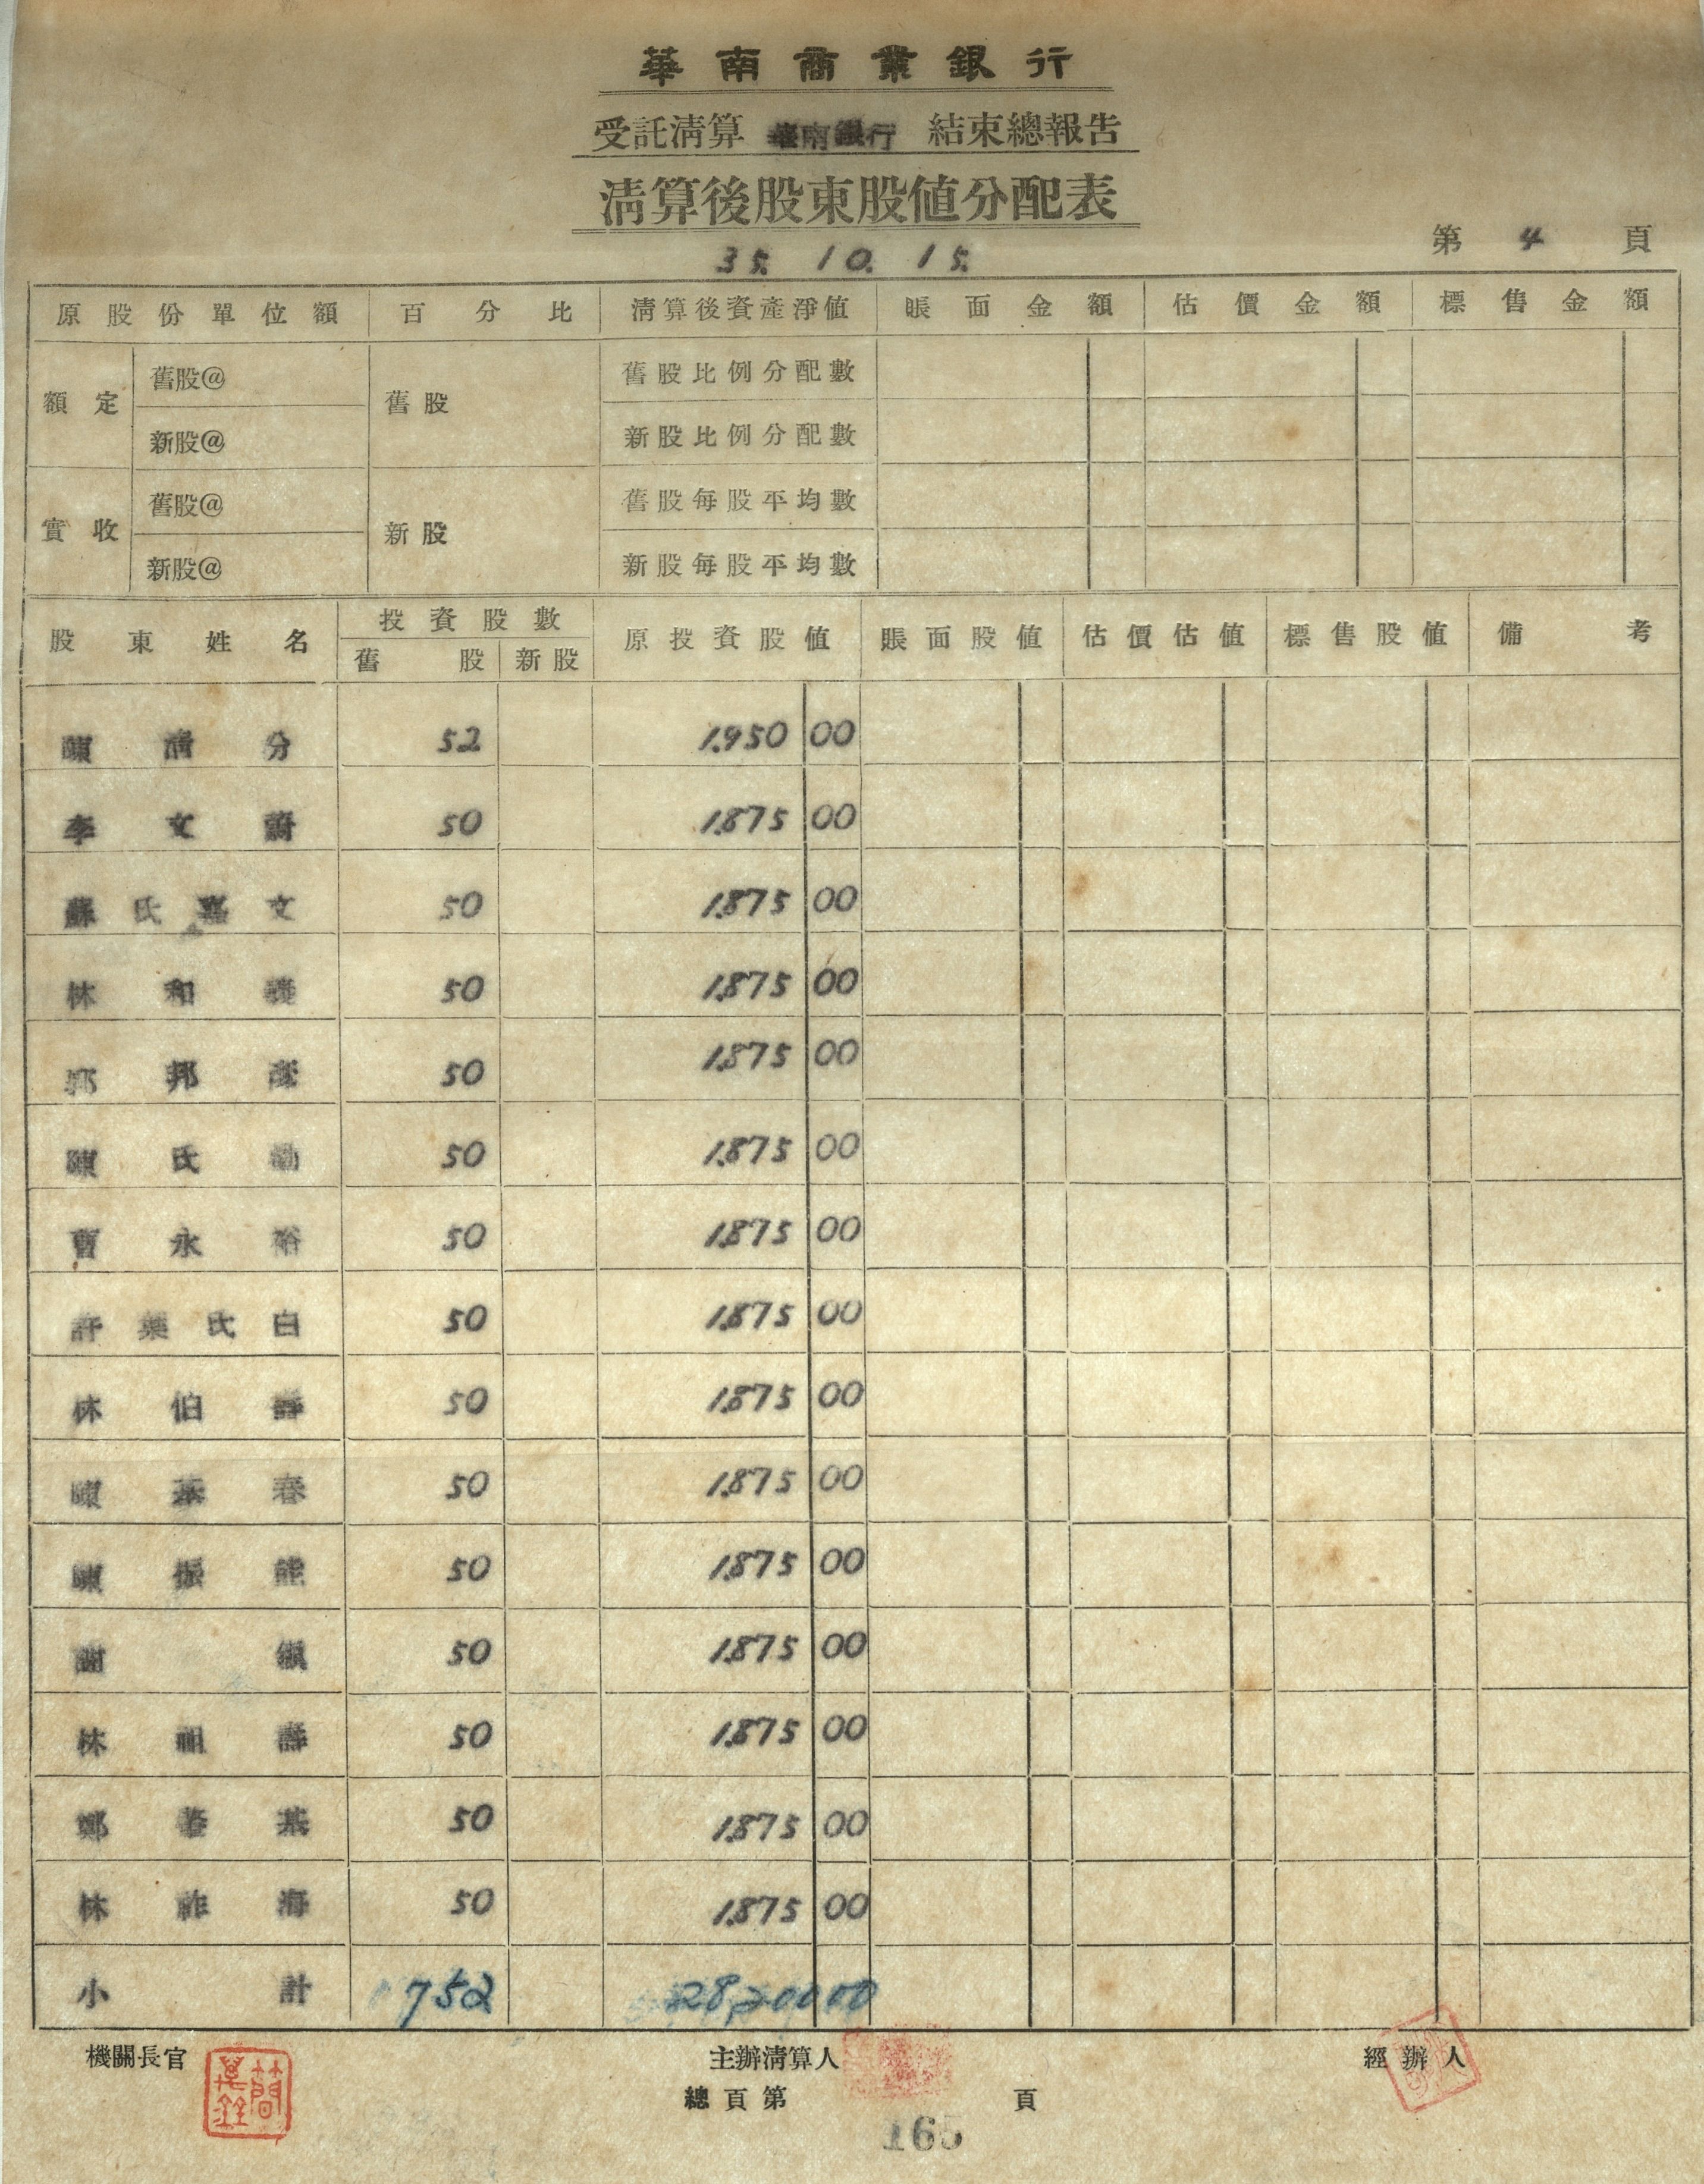 華南商業銀行
受託清算 華南銀行 結束總報告
清算後股東股值分配表
35. 10. 15.
第 4 頁
原股份單位額 百分比 清算後資產淨值 賬面金額 估價金額 標售金額
額定 舊股@ 舊股 舊股比例分配數
新股@ 新股比例分配數
實收 舊股@ 新股 舊股每股平均數
新股@ 新股每股平均數
股東姓名 投資股數 原投資股值 賬面股值 估價估值 標售股值 備考
舊股 新股
陳清分 52 1.950 00
李文 50 1.875 00
蘇氏嘉文 50 1.875 00
林和 50 1.875 00
郭邦彥 50 1.875 00
陳氏 50 1.875 00
曹永裕 50 1.875 00
許葉氏白 50 1.875 00
林伯壽 50 1.875 00
陳春 50 1.875 00
陳振能 50 1.875 00
謝 50 1.875 00
林祖壽 50 1.875 00
鄭基 50 1.875 00
林祚海 50 1.875 00
小計 752 28,200 00
機關長官 主辦清算人 經辦人
總頁第 頁
165